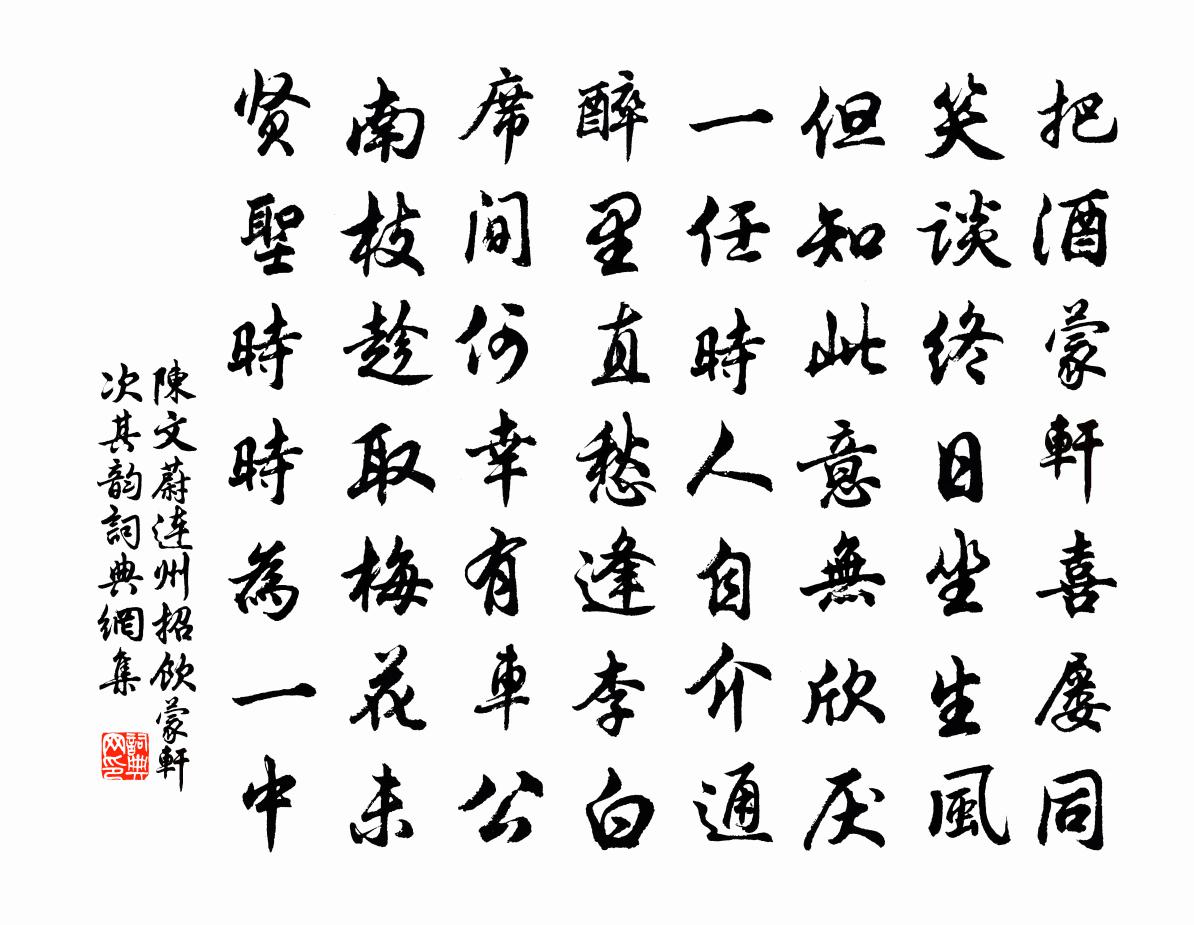 把酒蒙軒喜屡同
笑談终日坐生風
但知此意無欣厌
一任時人自介通
醉里直愁逢李白
席间何幸有車公
南枝趁取梅花未
贤聖時時為一中
陳文蔚连州招飲蒙軒
次其韵詞典網集
詞典
网印